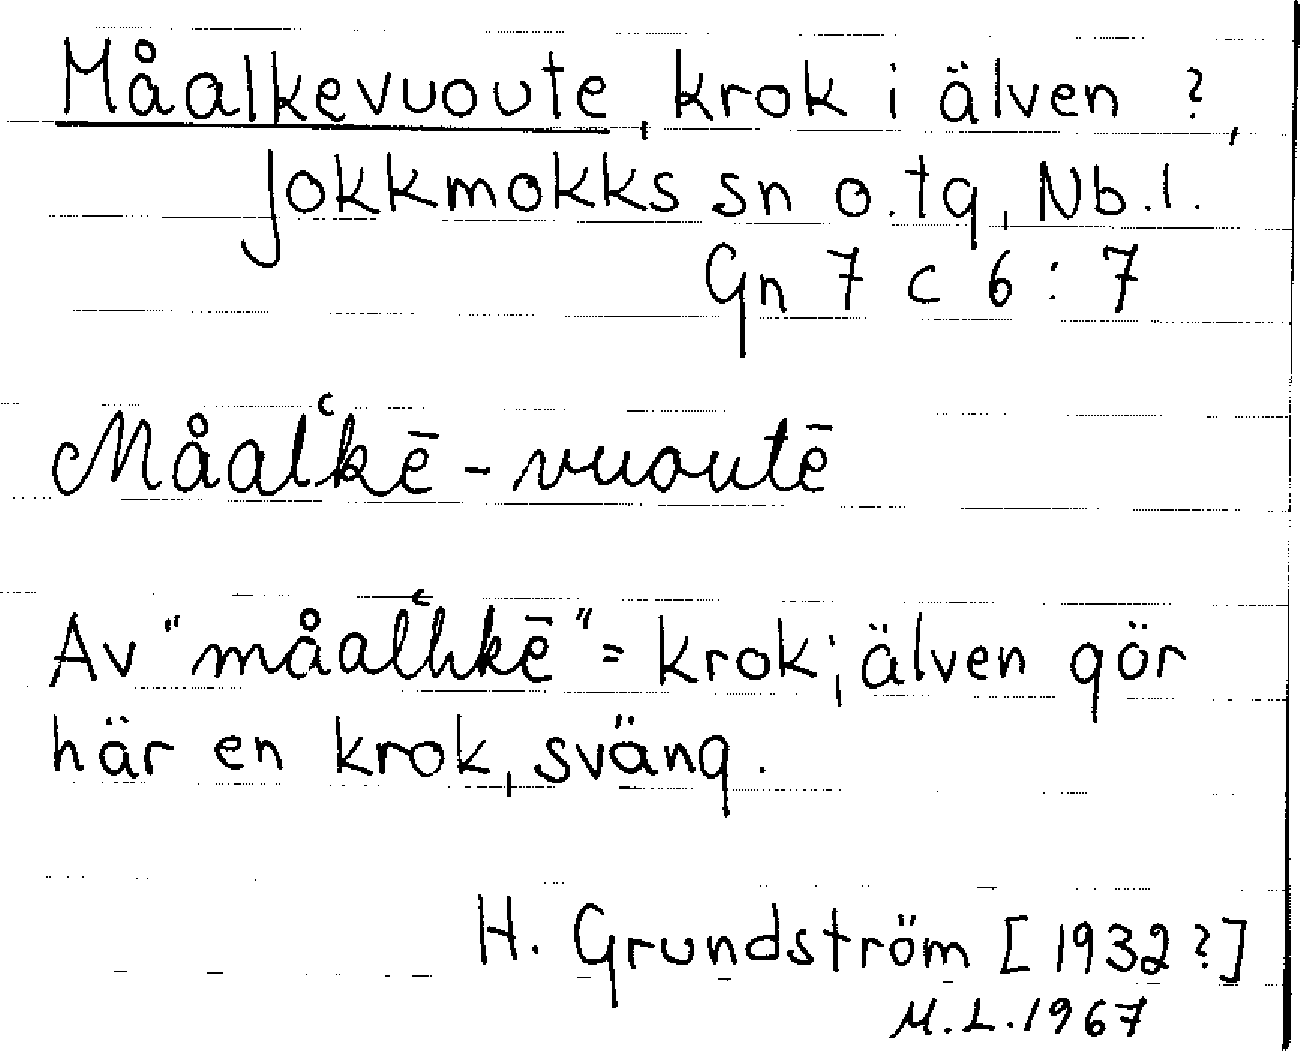 Måalkevuoute, krok i älven ?,
Jokkmokks sn o. tg, Nb. l.
Gn 7 c 6 : 7
Måalʿkē - vuoutē
Av "måalʿhkē" = krok; älven gör
här en krok, sväng.
H. Grundström [1932 ?]
M.L. 1967